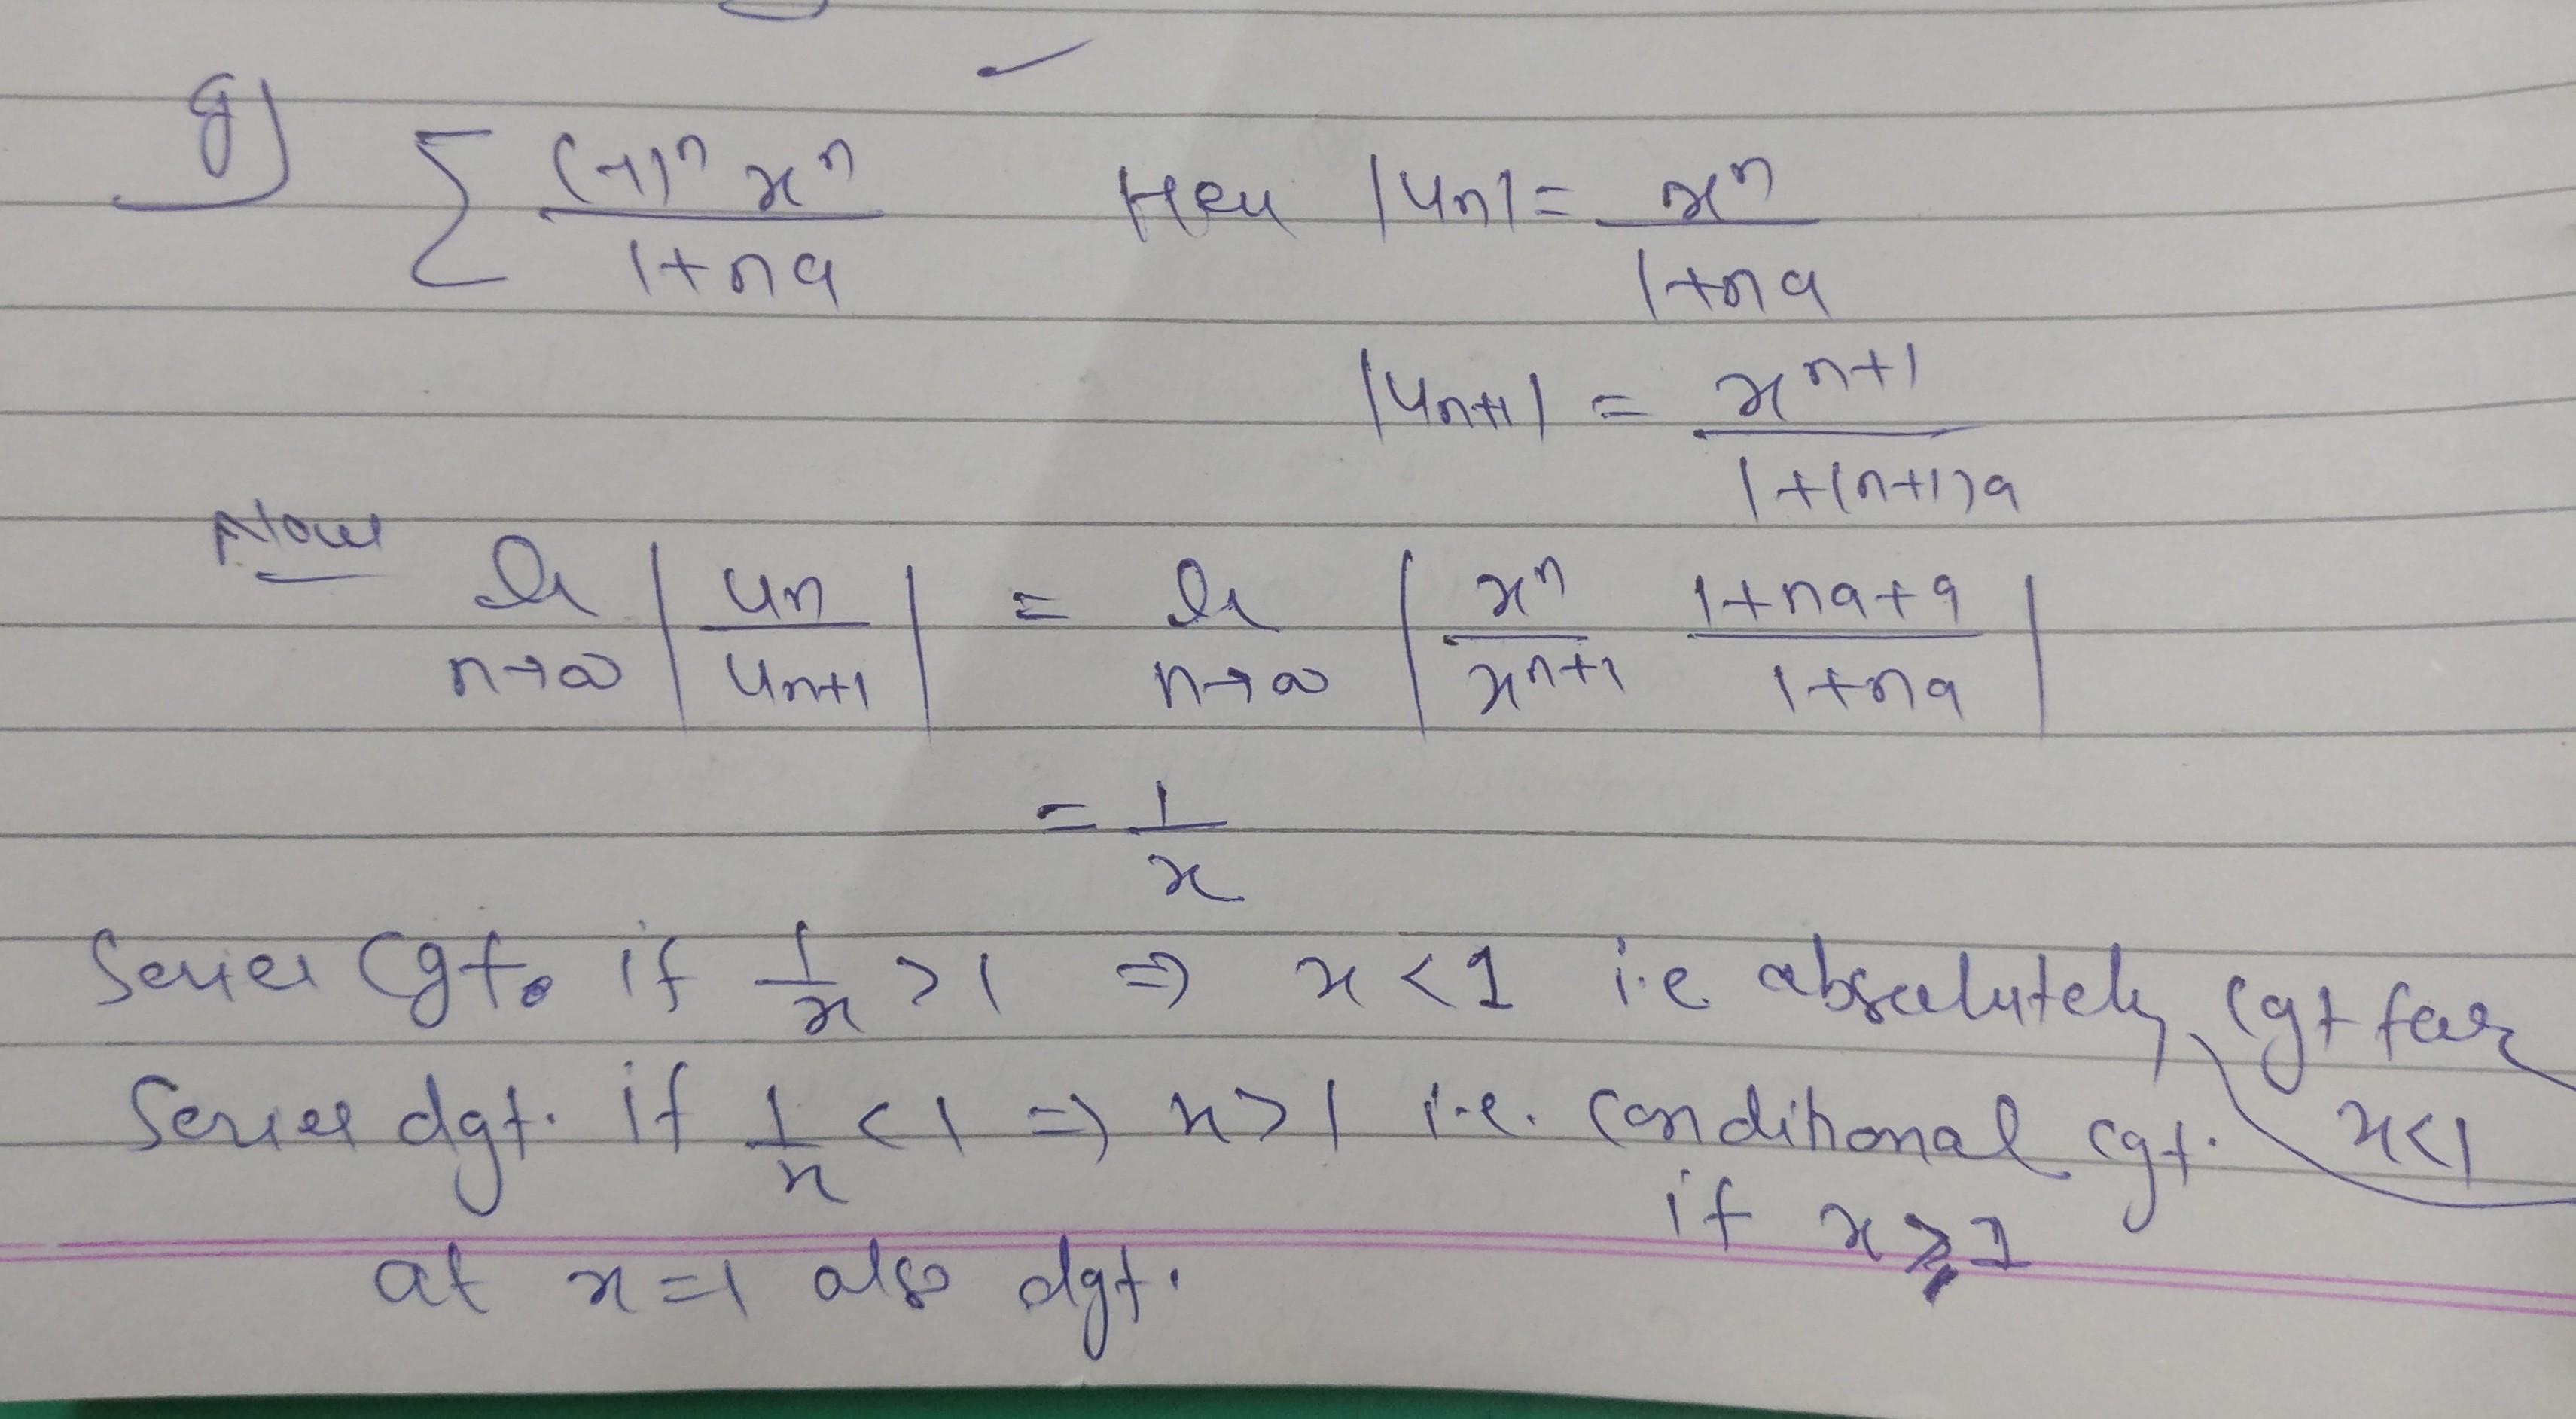 g) Σ (-1)ⁿ xⁿ / 1+na Here |uₙ| = xⁿ / 1+na
|uₙ₊₁| = xⁿ⁺¹ / 1+(n+1)a
Now lt n→∞ |uₙ / uₙ₊₁| = lt n→∞ |xⁿ / xⁿ⁺¹ 1+na+a / 1+na|
= 1/x
Series Cgt. if 1/x > 1 ⇒ x < 1 i.e absolutely Cgt for x<1
Series dgt. if 1/x < 1 ⇒ x > 1 i.e. Conditional cgt. if x ⩾ 1
at x=1 also dgt.